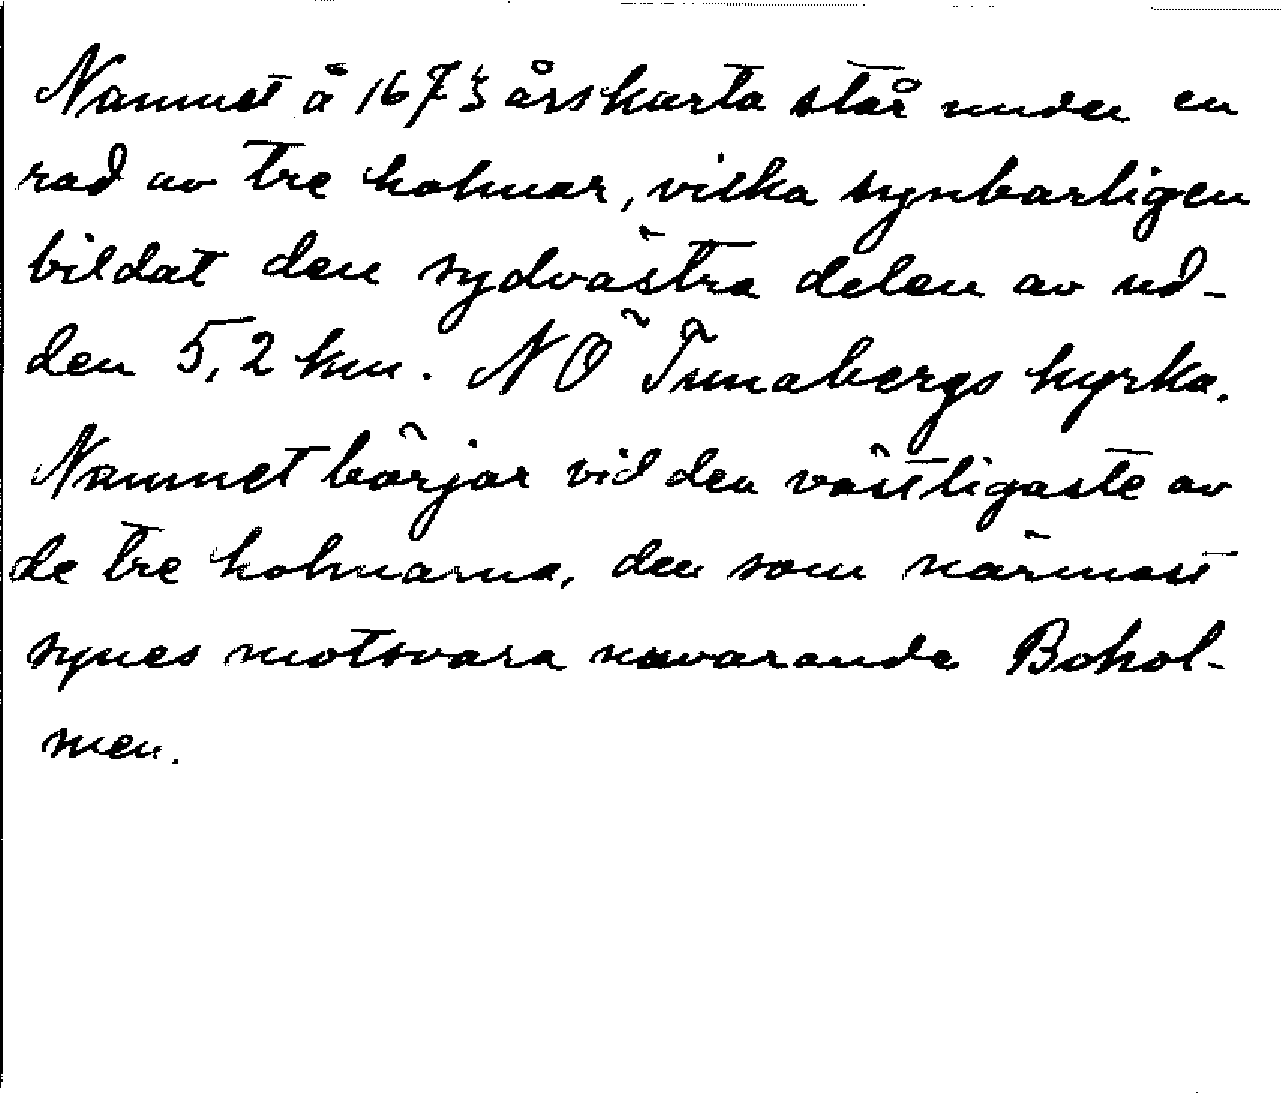 Namnet å 1673 årskarta står under en
rad av tre holmar, vilka synbarligen
bildat den sydvästra delen av ud-
den 5,2 km. NÖ Tunabergs kyrka.
Namnet börjar vid den västligaste av
de tre holmarna, den som närmast
synes motsvara nuvarande Bohol-
men.